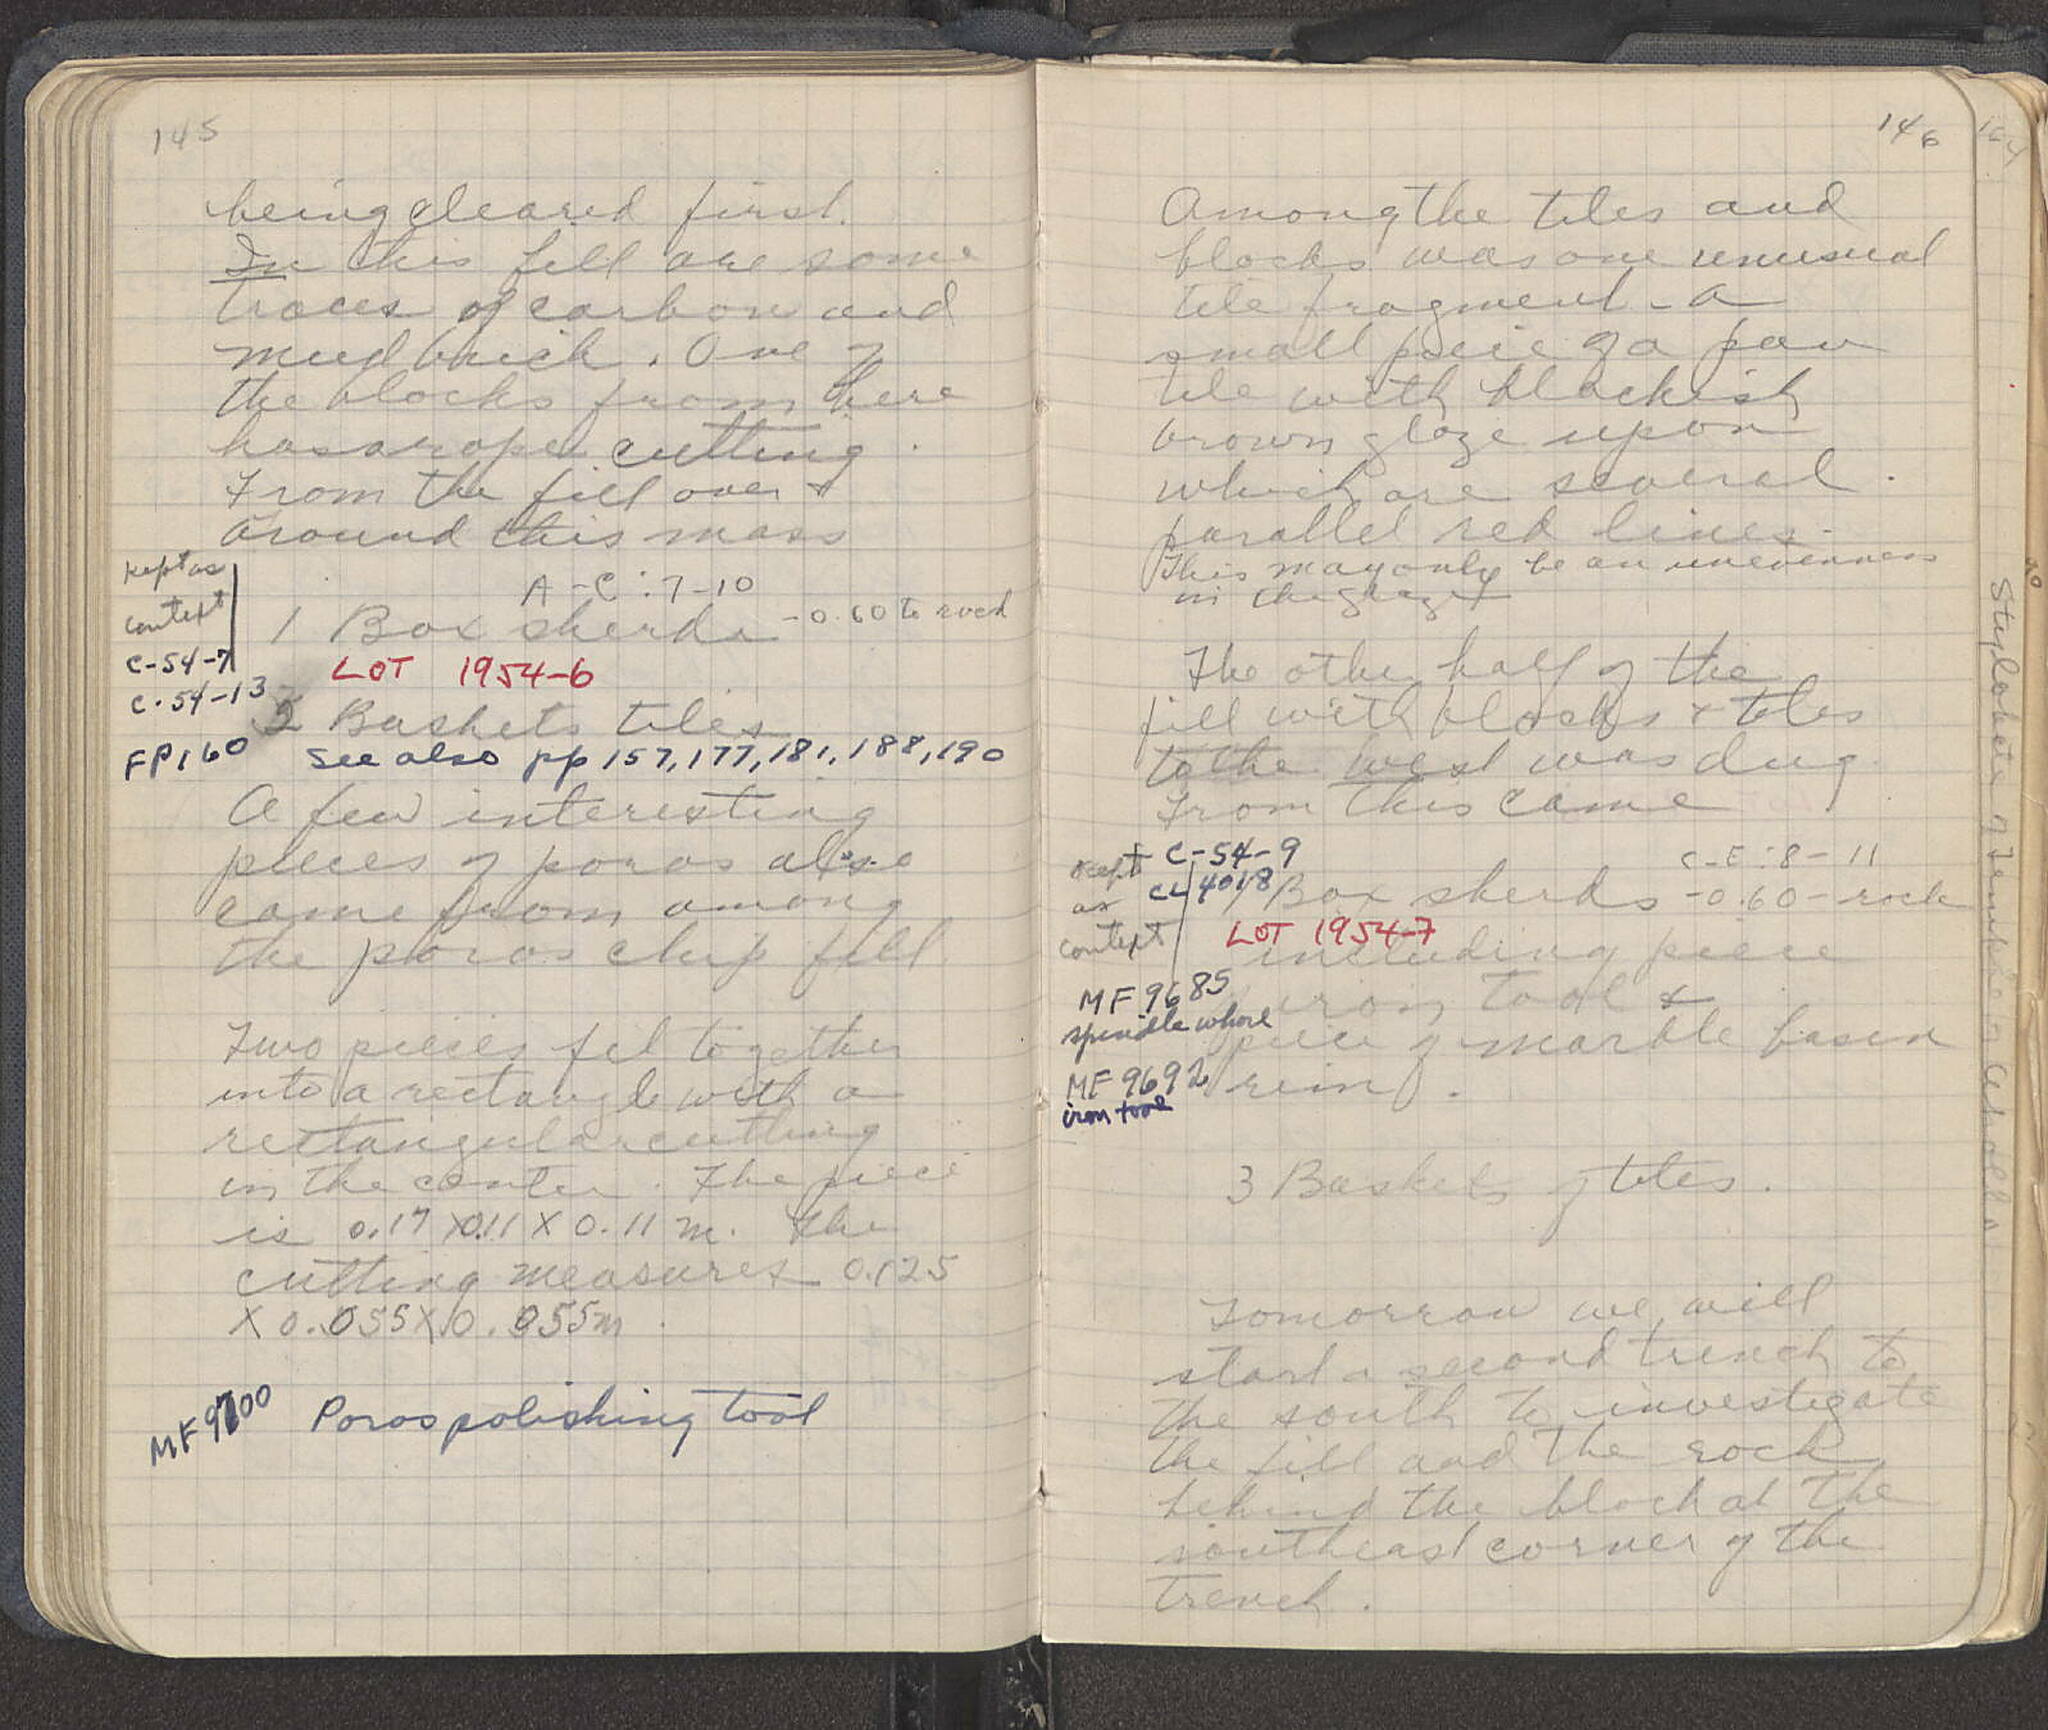 145
being cleared first.
In this fill are some
traces of carbon and
mud brick. One of
the blocks from here
has a rope cutting.
From the fill over &
around this mass
Kept as
context
A-C:7-10
1 Box sherds -0.60 to rock
C-54-7
LOT 1954-6
C-54-13
2 Baskets tiles
FP160 See also pp 157,177,181,188,190
A few interesting
pieces of poros also
came from among
the poros chip fill.
Two pieces fit together
into a rectangle with a
rectangular cutting
in the center. The piece
is 0.17 x 0.11 x 0.11 m. The
cutting measures 0.125
x 0.055 x 0.055m.
MF9700 Poros polishing tool
146
Among the tiles and
blocks was one unusual
tile fragment - a
small piece of a pan
tile with blackish
brown glaze upon
which are several
parallel red lines.
This may only be an unevenness
in the glaze
The other half of the
fill with blocks & tiles
to the west was dug.
From this came
Kept C-54-9 C-E:8-11
as CL 4018 1 Box sherds -0.60 - rock
context LOT 1954-7
including piece
MF 9685 iron tool &
spindle whorl
piece of marble basin
MF 9692 rim.
iron tool
3 Baskets of tiles.
Tomorrow we will
start a second trench to
the south to investigate
the fill and the rock
behind the block at the
southeast corner of the
trench.
Stylobate of Temple of Apollo